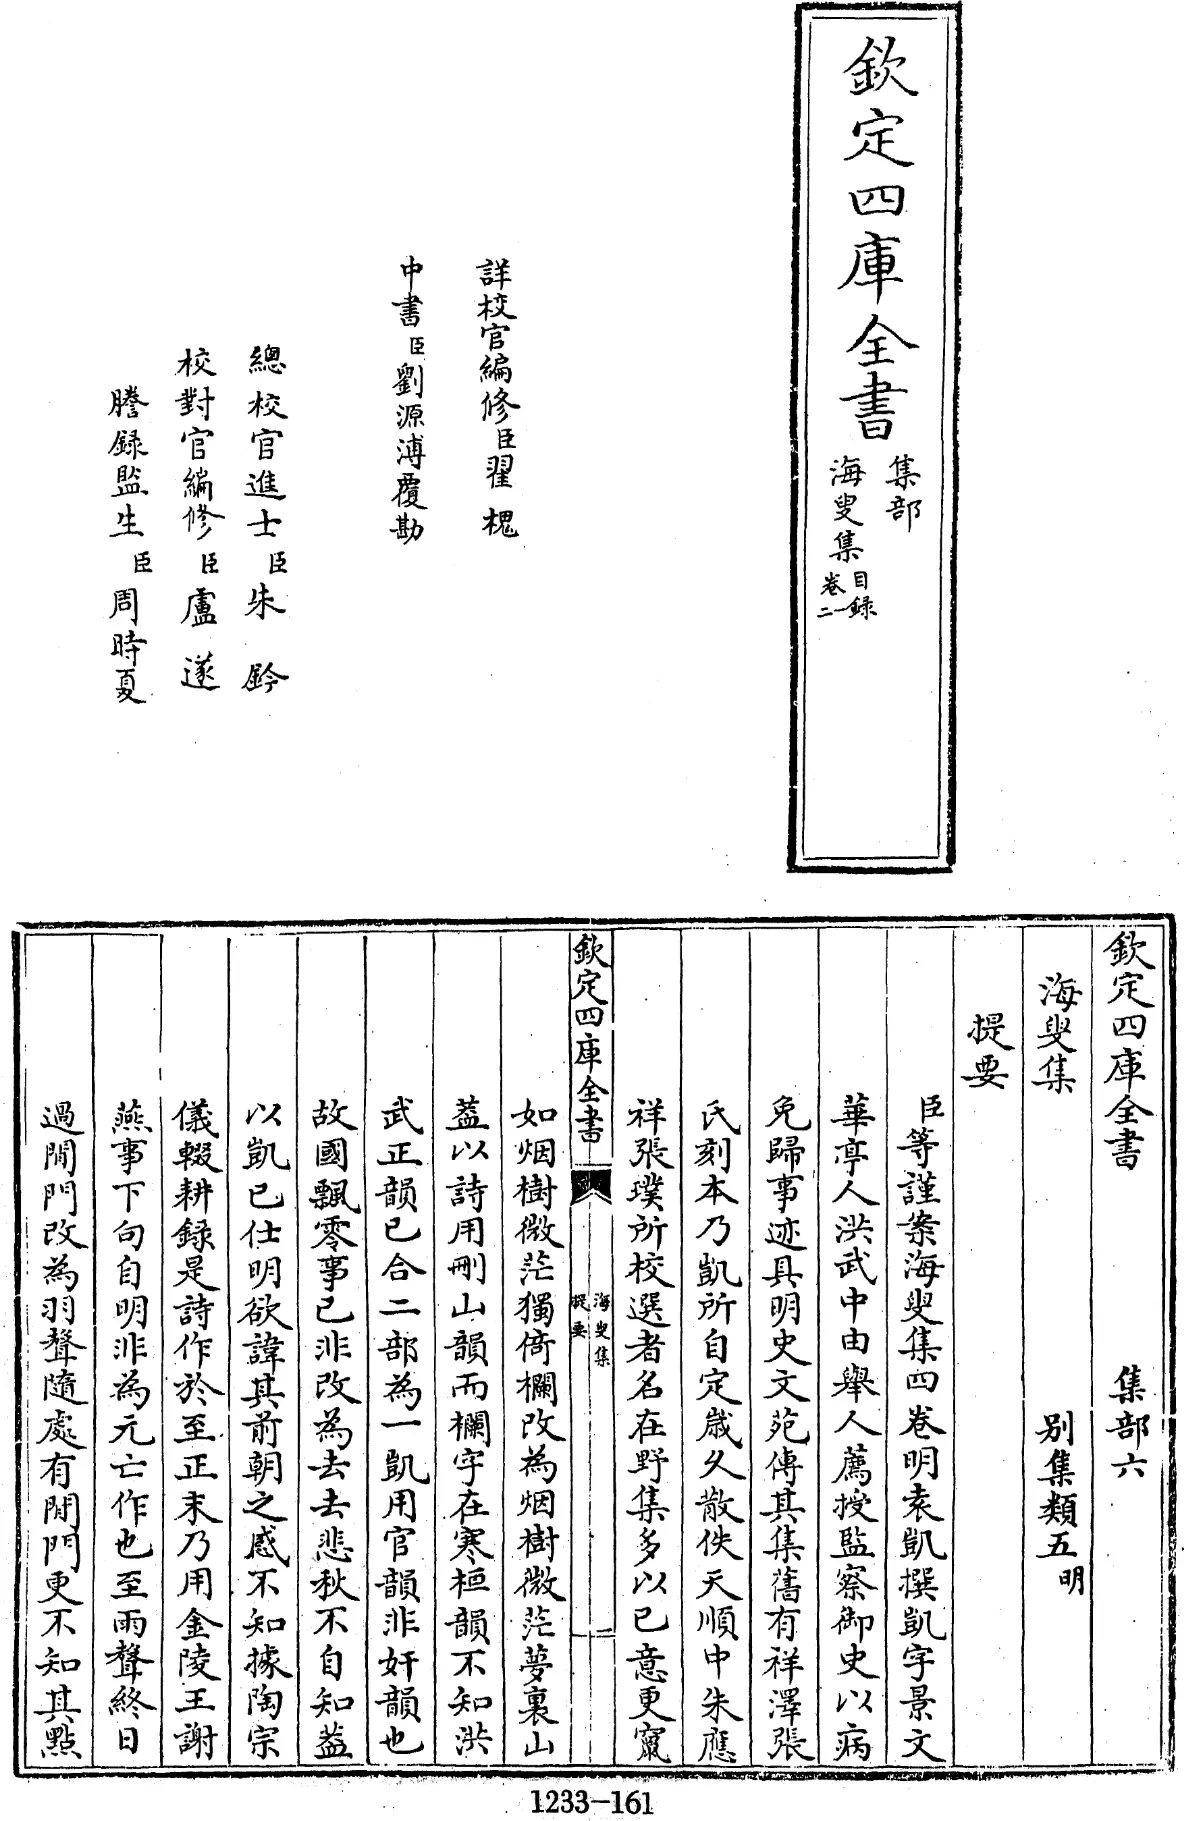 欽定四庫全書
集部
海叟集
目録
卷一
二
詳校官編修臣翟槐
中書臣劉源溥覆勘
總校官進士臣朱鈐
校對官編修臣盧遂
謄録監生臣周時夏
欽定四庫全書 集部六
海叟集 别集類五明
提要
臣等謹案海叟集四卷明袁凱撰凱字景文
華亭人洪武中由舉人薦授監察御史以病
免歸事迹具明史文苑傳其集舊有祥澤張
氏刻本乃凱所自定歳久散佚天順中朱應
祥張璞所校選者名在野集多以己意更竄
欽定四庫全書
海叟集
提要
二
如烟樹微茫獨倚欄改為烟樹微茫夢裏山
蓋以詩用刪山韻而欄字在寒桓韻不知洪
武正韻已合二部為一凱用官韻非奸韻也
故國飄零事已非改為去去悲秋不自知蓋
以凱已仕明欲諱其前朝之感不知據陶宗
儀輟耕録是詩作於至正末乃用金陵王謝
燕事下句自明非為元亡作也至雨聲終日
過閒門改為羽聲隨處有閒門更不知其點
1233-161